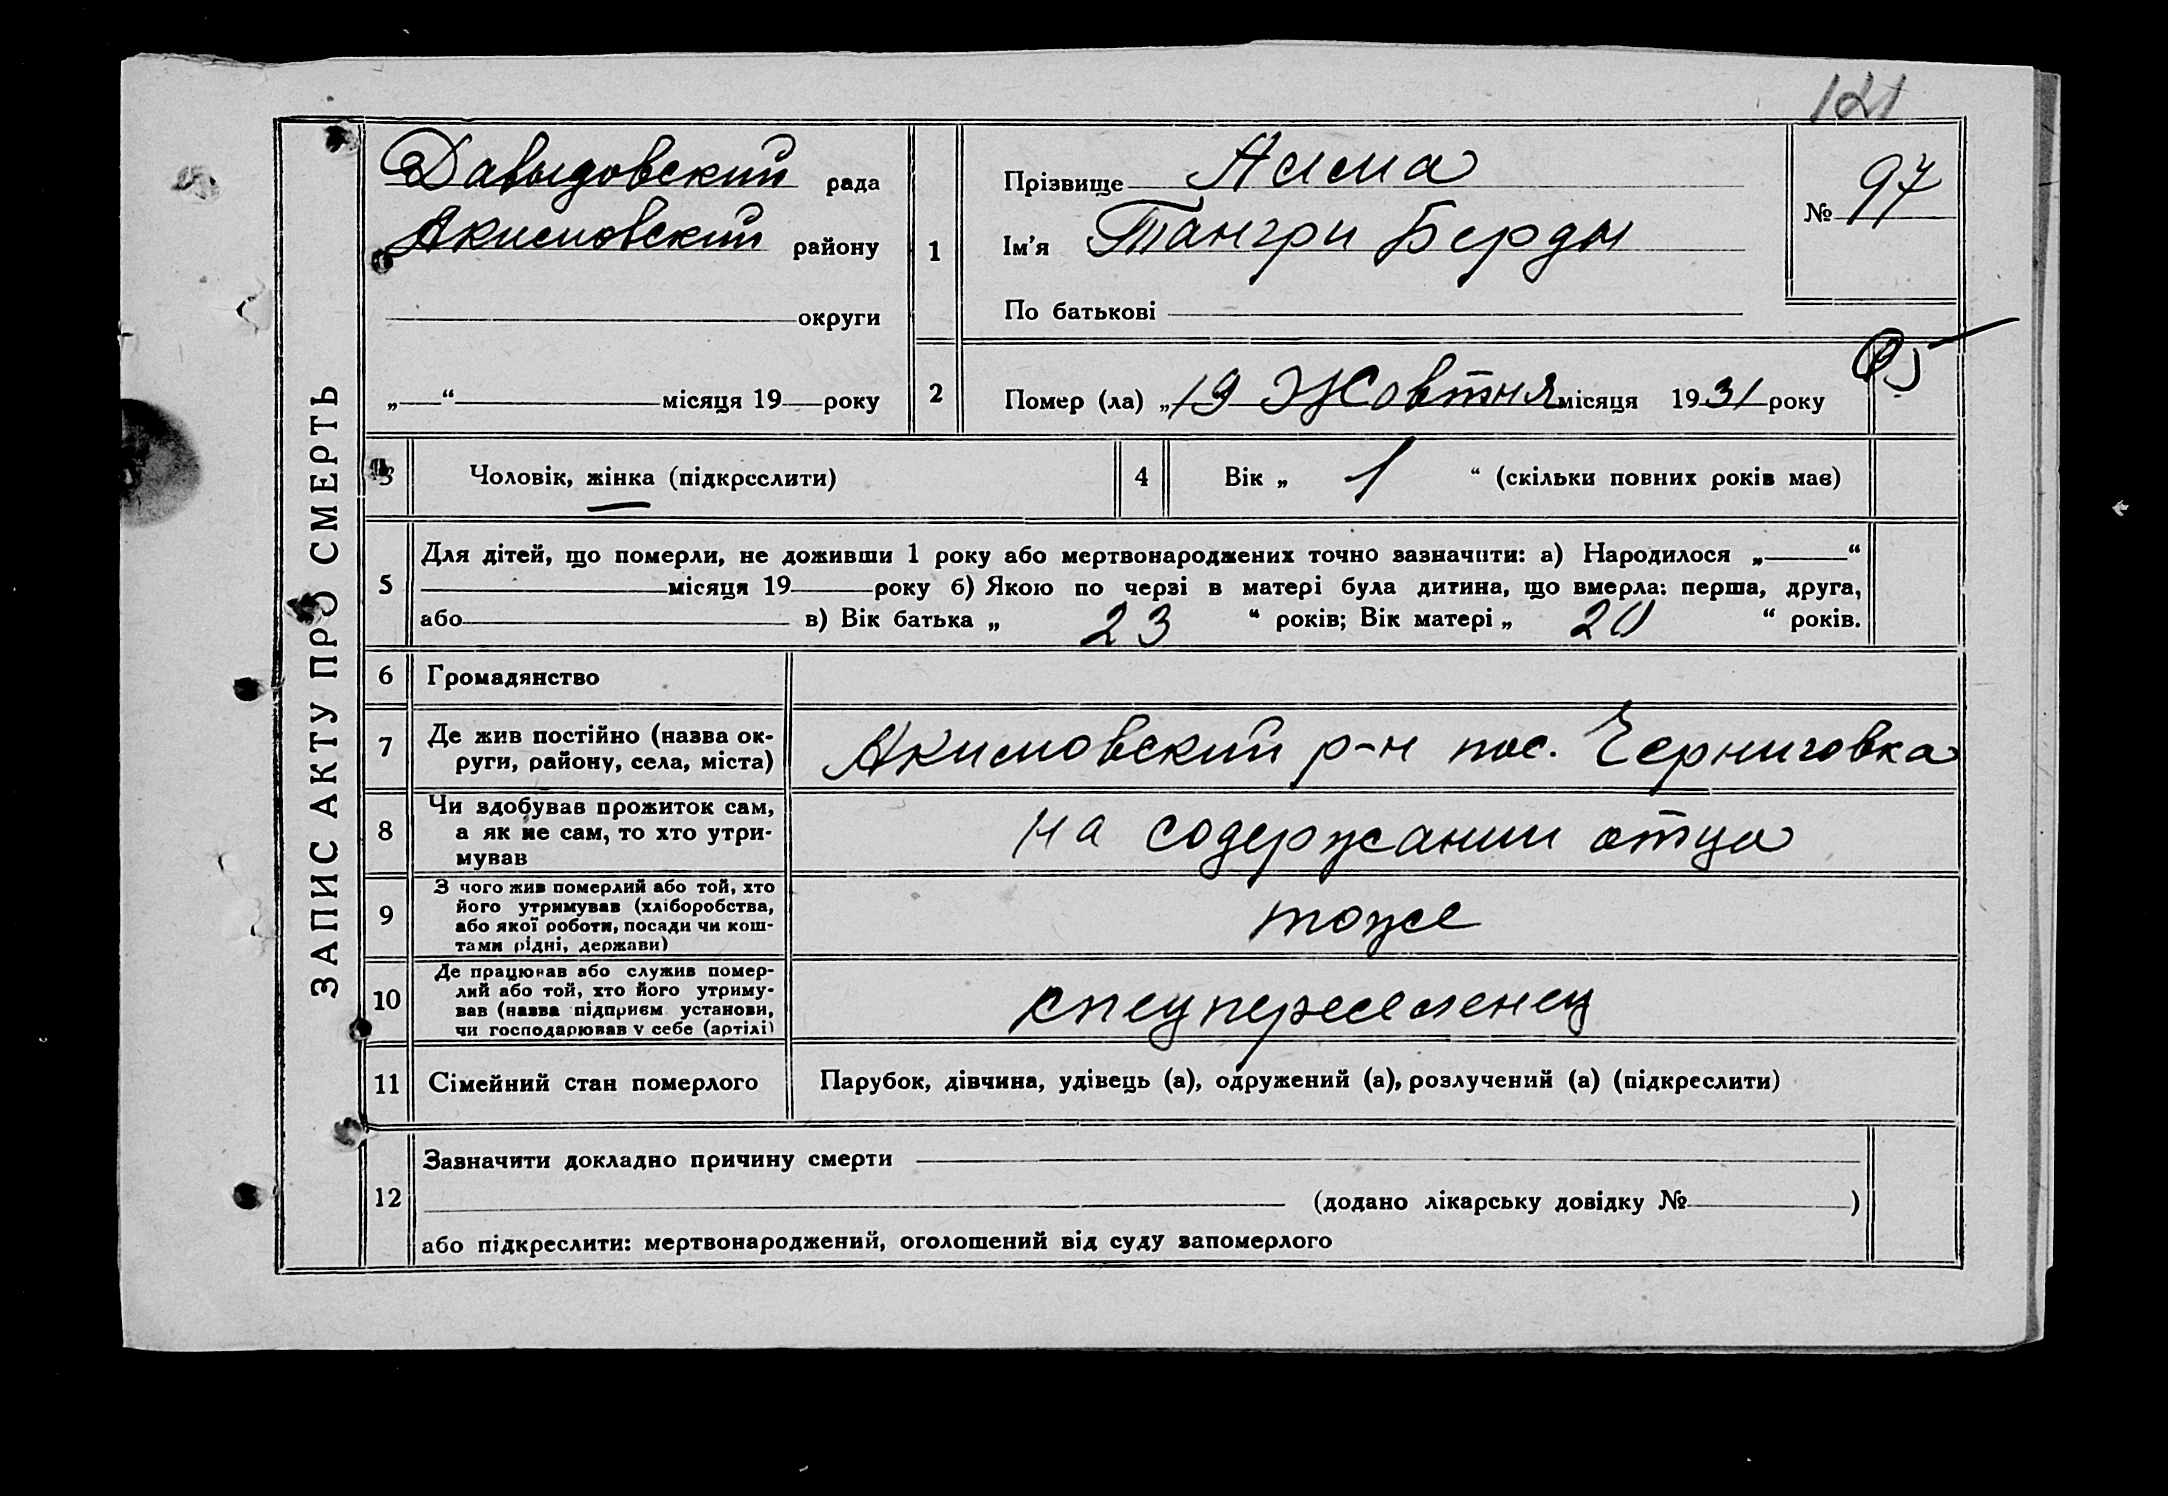 121
ЗАПИС АКТУ ПРО СМЕРТЬ
Давыдовский рада
Акимовский району
округи
„ “ місяця 19 року
1
Прізвище Асима
Ім’я Тангри Берды
По батькові
№ 97
2
Помер (ла) „19 Жовтня місяця 1931 року
3
Чоловік, жінка (підкреслити)
4
Вік „ 1 “ (скільки повних років має)
5
Для дітей, що померли, не доживши 1 року або мертвонароджених точно зазначити: а) Народилося „ “
місяця 19 року б) Якою по черзі в матері була дитина, що вмерла: перша, друга,
або в) Вік батька „ 23 “ років; Вік матері „ 20 “ років.
6
Громадянство
7
Де жив постійно (назва ок-
руги, району, села, міста)
Акимовский р-н пос. Черниговка
8
Чи здобував прожиток сам,
а як не сам, то хто утри-
мував
на содержании отца
9
З чого жив померлий або той, хто
його утримував (хліборобства,
або якої роботи, посади чи кош-
тами рідні, держави)
тоже
10
Де працював або служив помер-
лий або той, хто його утриму-
вав (назва підприєм. установи,
чи господарював у себе (артілі)
спецпереселенец
11
Сімейний стан померлого
Парубок, дівчина, удівець (а), одружений (а), розлучений (а) (підкреслити)
12
Зазначити докладно причину смерти
(додано лікарську довідку № )
або підкреслити: мертвонароджений, оголошений від суду запомерлого